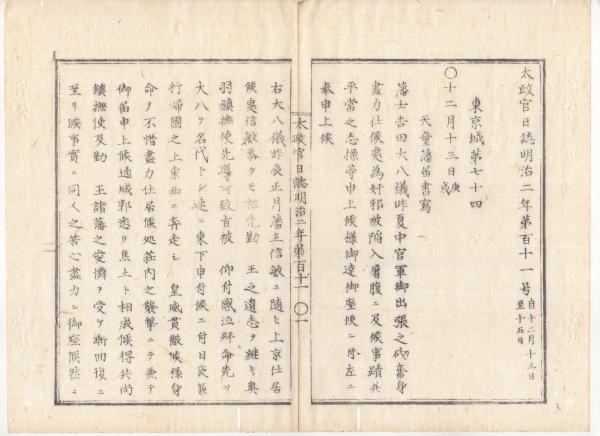 太政官日誌明治二年第百十一号 自十二月十三日至十五日
東京城第七十四
〇十二月十三日 庚戌
天童藩届書写
藩士吉田大八儀昨夏中官軍御出張之砌奮身
尽力仕候処為奸邪被陥入屠腹ニ及候事蹟共
平常之志操等申上候様御達御座候ニ付左ニ
奉申上候
太政官日誌明治二年第百十一 〇一
右大八儀昨辰正月藩主信敏ニ随ヒ上京仕居
候処信敏忝クモ祖先勤 王之遺志ヲ継キ奥
羽鎮撫使先導可致旨被 仰付感泣拝命先ツ
大八ヲ名代トシ速ニ東下申付候ニ付日夜兼
行帰国之上東西ニ奔走シ 皇威貫徹候様身
命ヲ不惜尽力仕居候処荘内之襲撃ニテ兼テ
御届申上候通城邪悉ク焦土ト相成候得共尚
鎮撫使及勤 王諸藩之愛憐ヲ受ケ漸回復ニ
至リ候事実ニ同人之苦心尽力ニ御座候然ニ